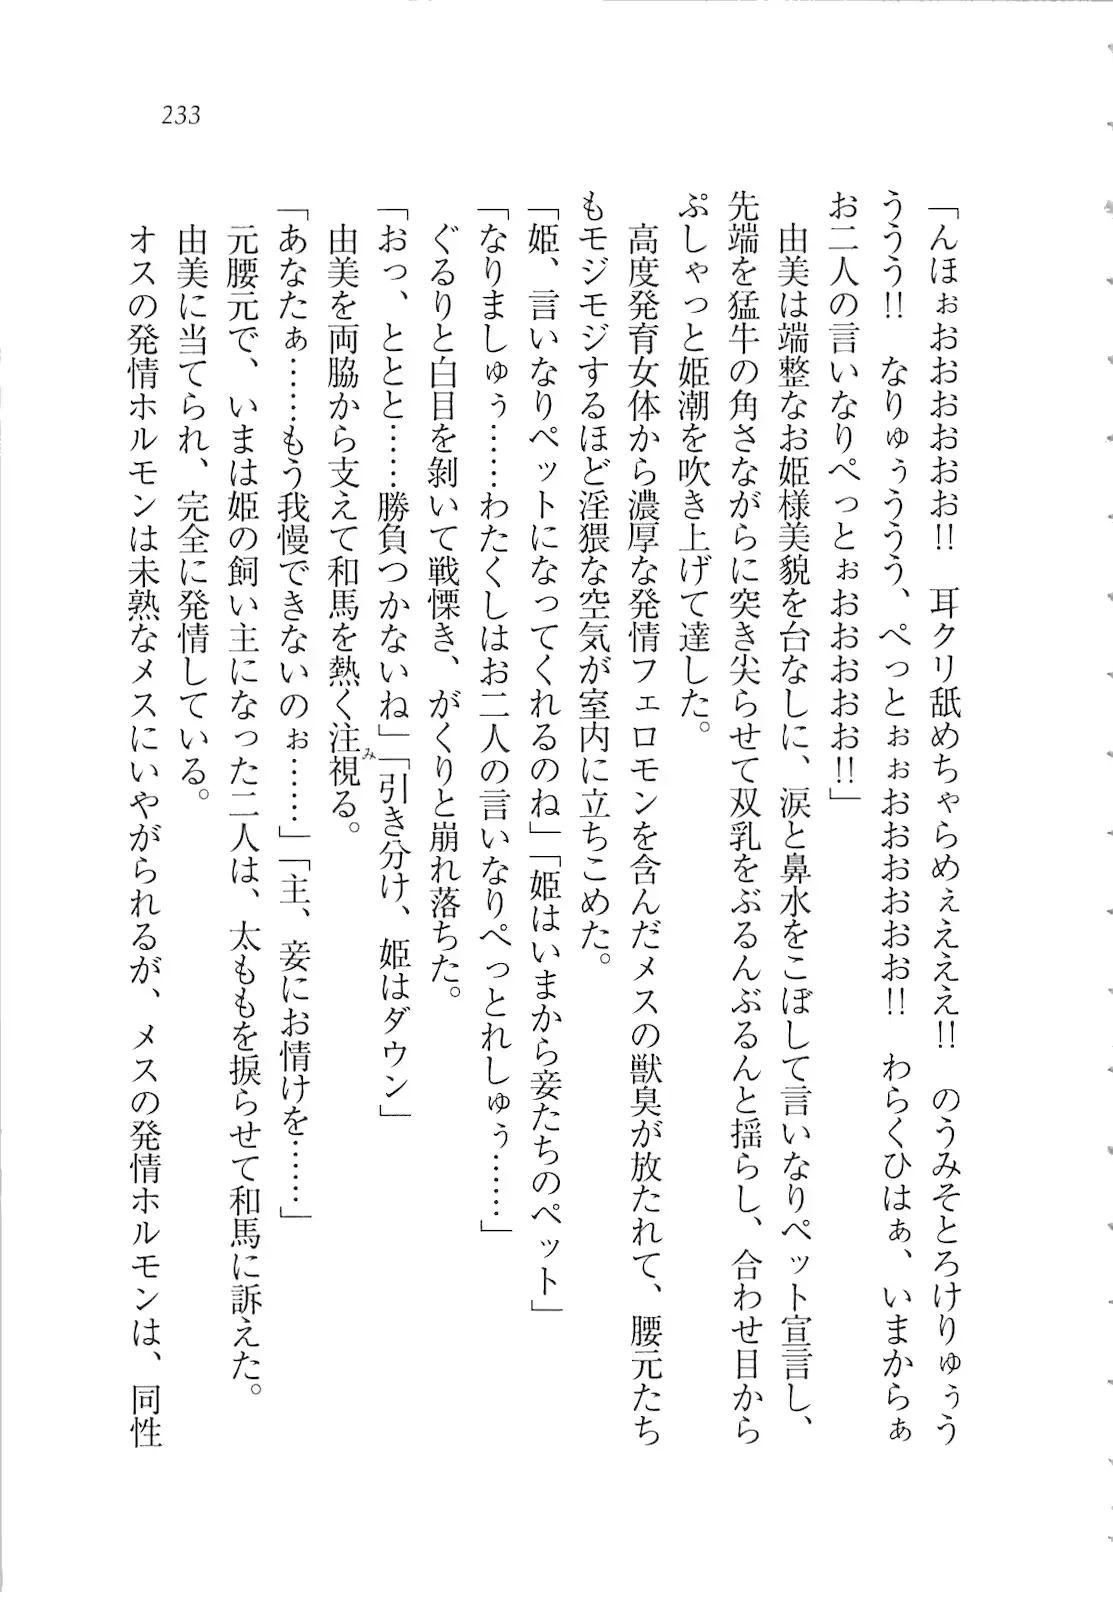 233
「んほぉおおおおおお!!　耳クリ舐めちゃらめぇえええ!!　のうみそとろけりゅぅう
ううう!!　なりゅぅううう、ぺっとぉぉおおおおおお!!　わらくひはぁ、いまからぁ
お二人の言いなりぺっとぉおおおおお!!」
由美は端整なお姫様美貌を台なしに、涙と鼻水をこぼして言いなりペット宣言し、
先端を猛牛の角さながらに突き尖らせて双乳をぶるんぶるんと揺らし、合わせ目から
ぷしゃっと姫潮を吹き上げて達した。
高度発育女体から濃厚な発情フェロモンを含んだメスの獣臭が放たれて、腰元たち
もモジモジするほど淫猥な空気が室内に立ちこめた。
「姫、言いなりペットになってくれるのね」「姫はいまから妾たちのペット」
「なりましゅぅ……わたくしはお二人の言いなりぺっとれしゅぅ……」
ぐるりと白目を剝いて戦慄き、がくりと崩れ落ちた。
「おっ、ととと……勝負つかないね」「引き分け、姫はダウン」
由美を両脇から支えて和馬を熱く注視る。
み
「あなたぁ……もう我慢できないのぉ……」「主、妾にお情けを……」
元腰元で、いまは姫の飼い主になった二人は、太ももを捩らせて和馬に訴えた。
由美に当てられ、完全に発情している。
オスの発情ホルモンは未熟なメスにいやがられるが、メスの発情ホルモンは、同性